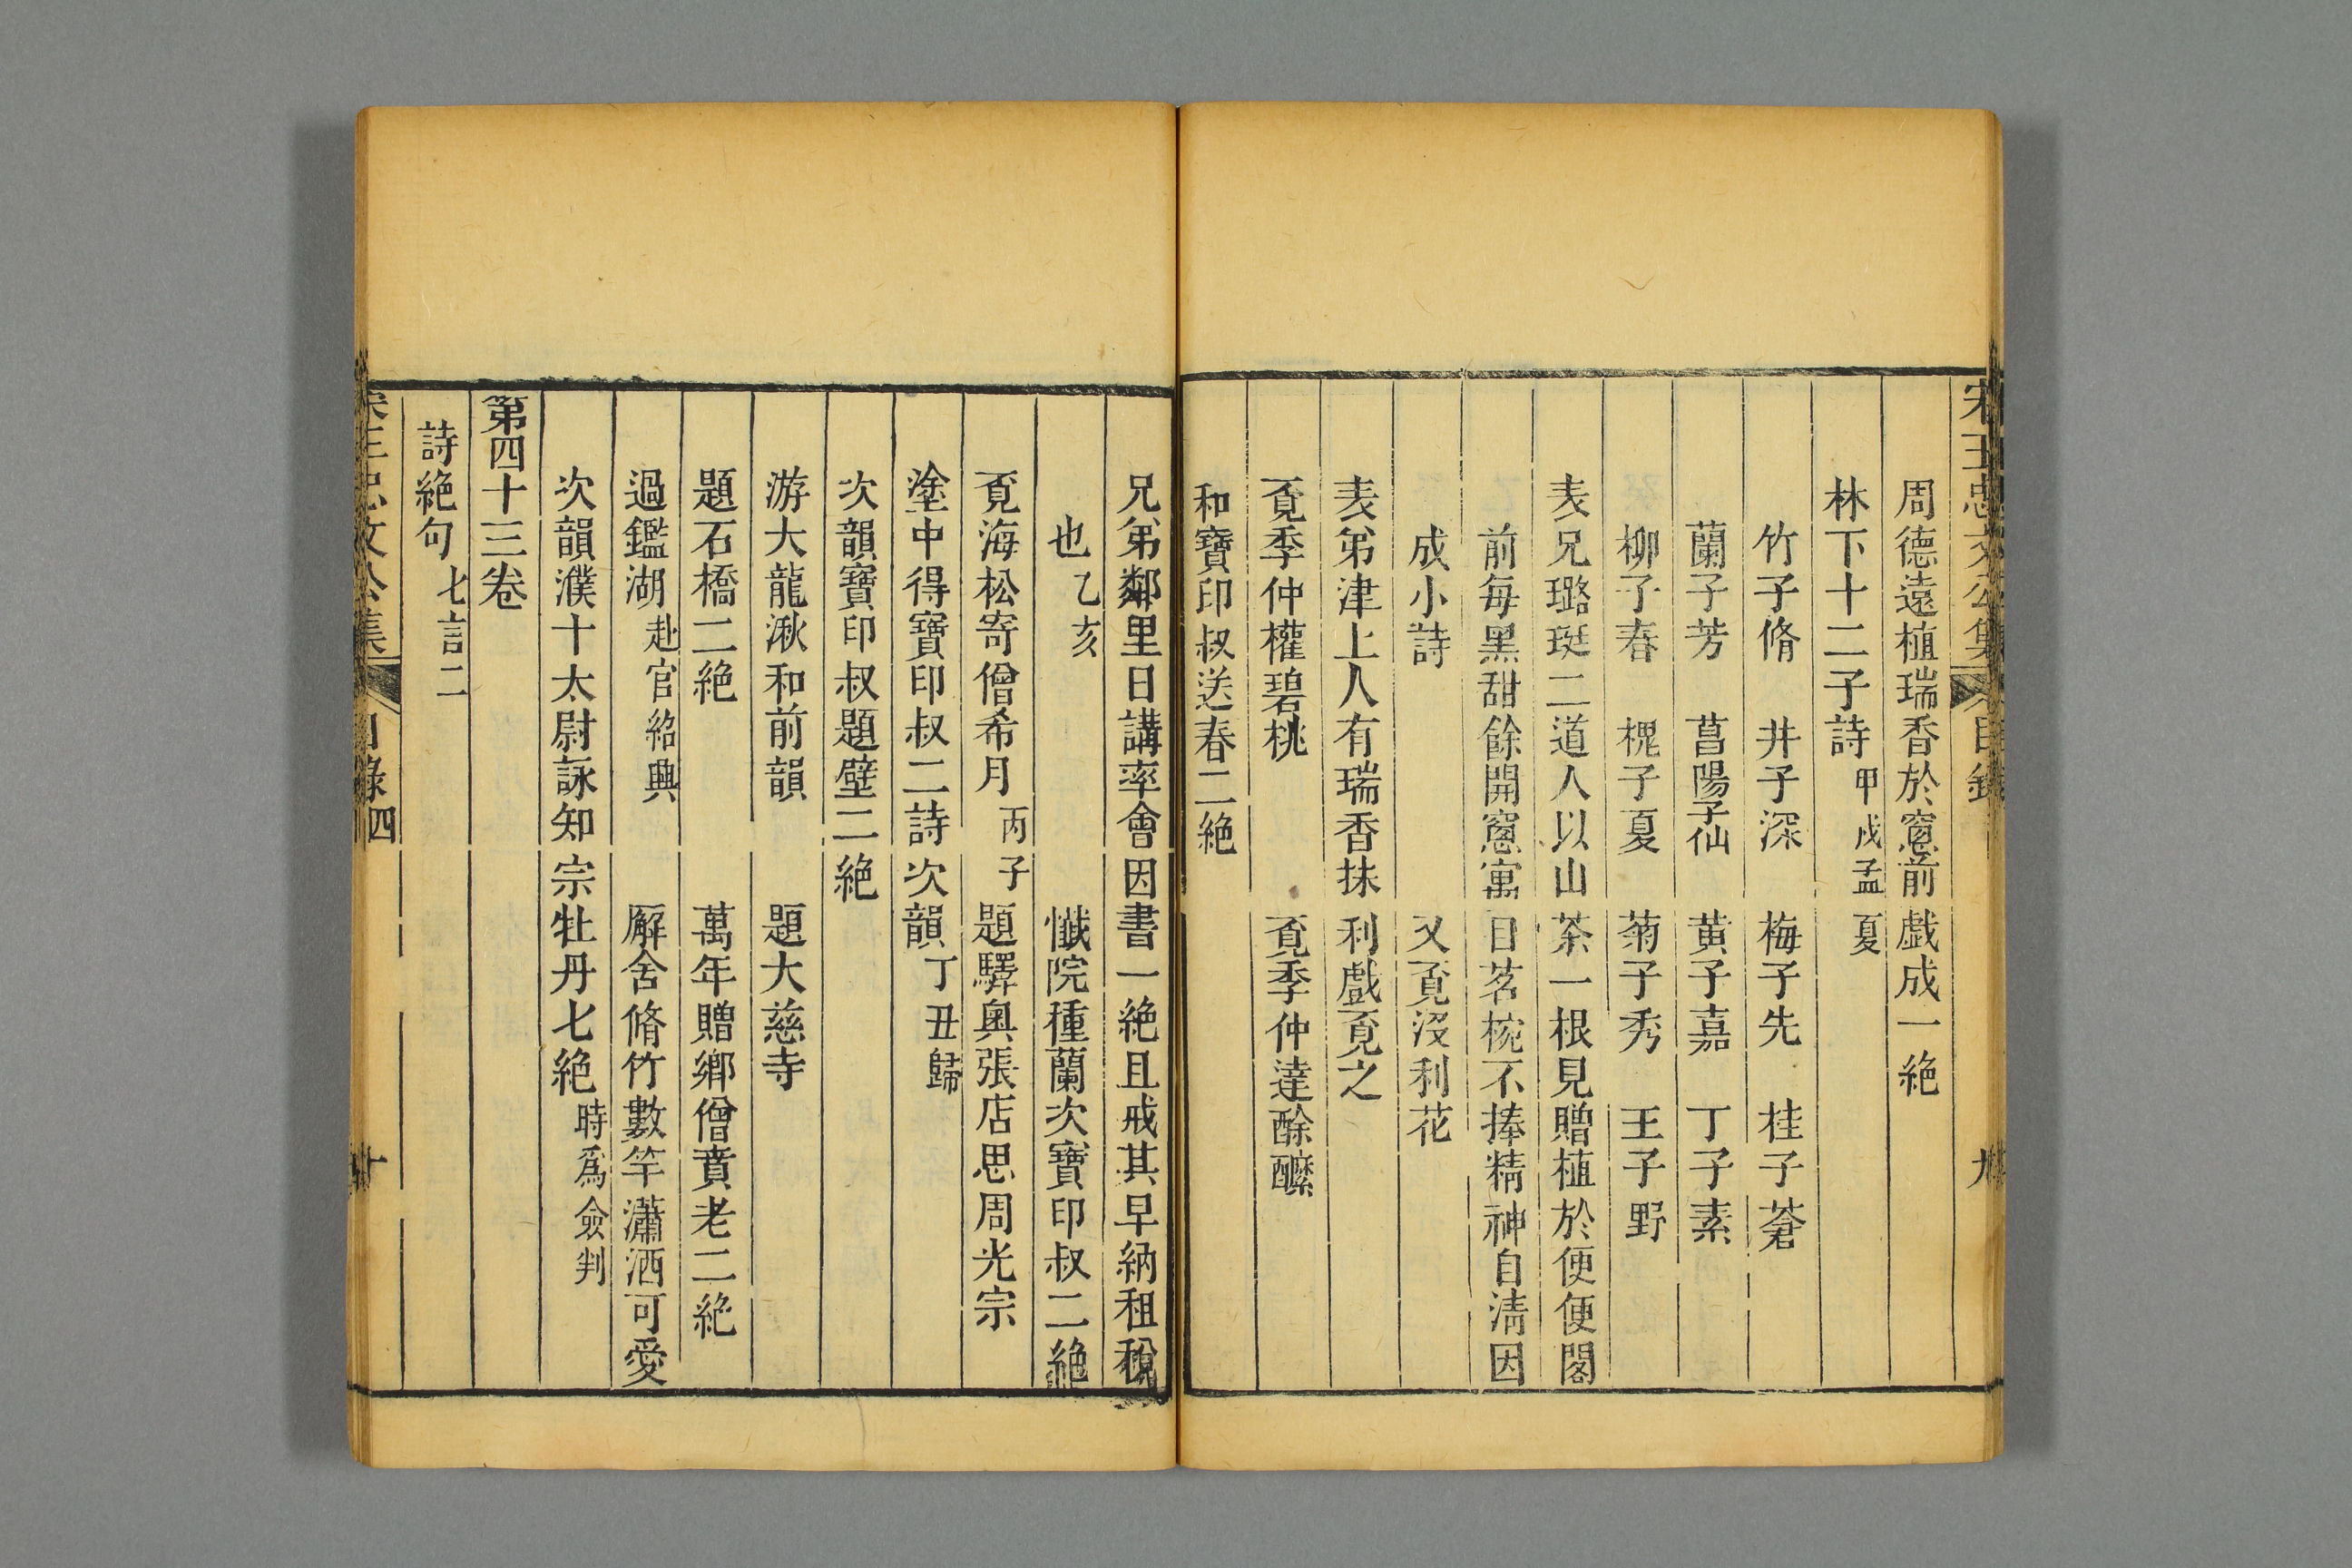 宋王忠文公集 目錄 九
周德遠植瑞香於窻前戯成一絶
林下十二子詩 甲戌孟夏
竹子脩 井子深 梅子先 桂子蒼
蘭子芳 菖陽子仙 黄子嘉 丁子素
柳子春 槐子夏 菊子秀 王子野
表兄璐珽二道人以山茶一根見贈植於便便閣
前每黑甜餘開窻寓目茗椀不捧精神自淸因
成小詩 又覔沒利花
表弟津上人有瑞香抹利戲覔之
覔季仲權碧桃 覔季仲達酴醾
和寶印叔送春二絶
兄弟鄰里日講率會因書一絶且戒其早納租稅
也 乙亥 懺院種蘭次寶印叔二絶
覔海松寄僧希月 丙子 題驛奥張店思周光宗
塗中得寶印叔二詩次韻 丁丑歸
次韻寶印叔題壁二絶
游大龍湫和前韻 題大慈寺
題石橋二絶 萬年贈鄉僧賁老二絶
過鑑湖 赴官紹興 廨舍脩竹數竿瀟洒可愛
次韻濮十太尉詠知宗牡丹七絶 時爲僉判
第四十三卷
詩絶句 七言二
宋王忠文公集 目錄四 十